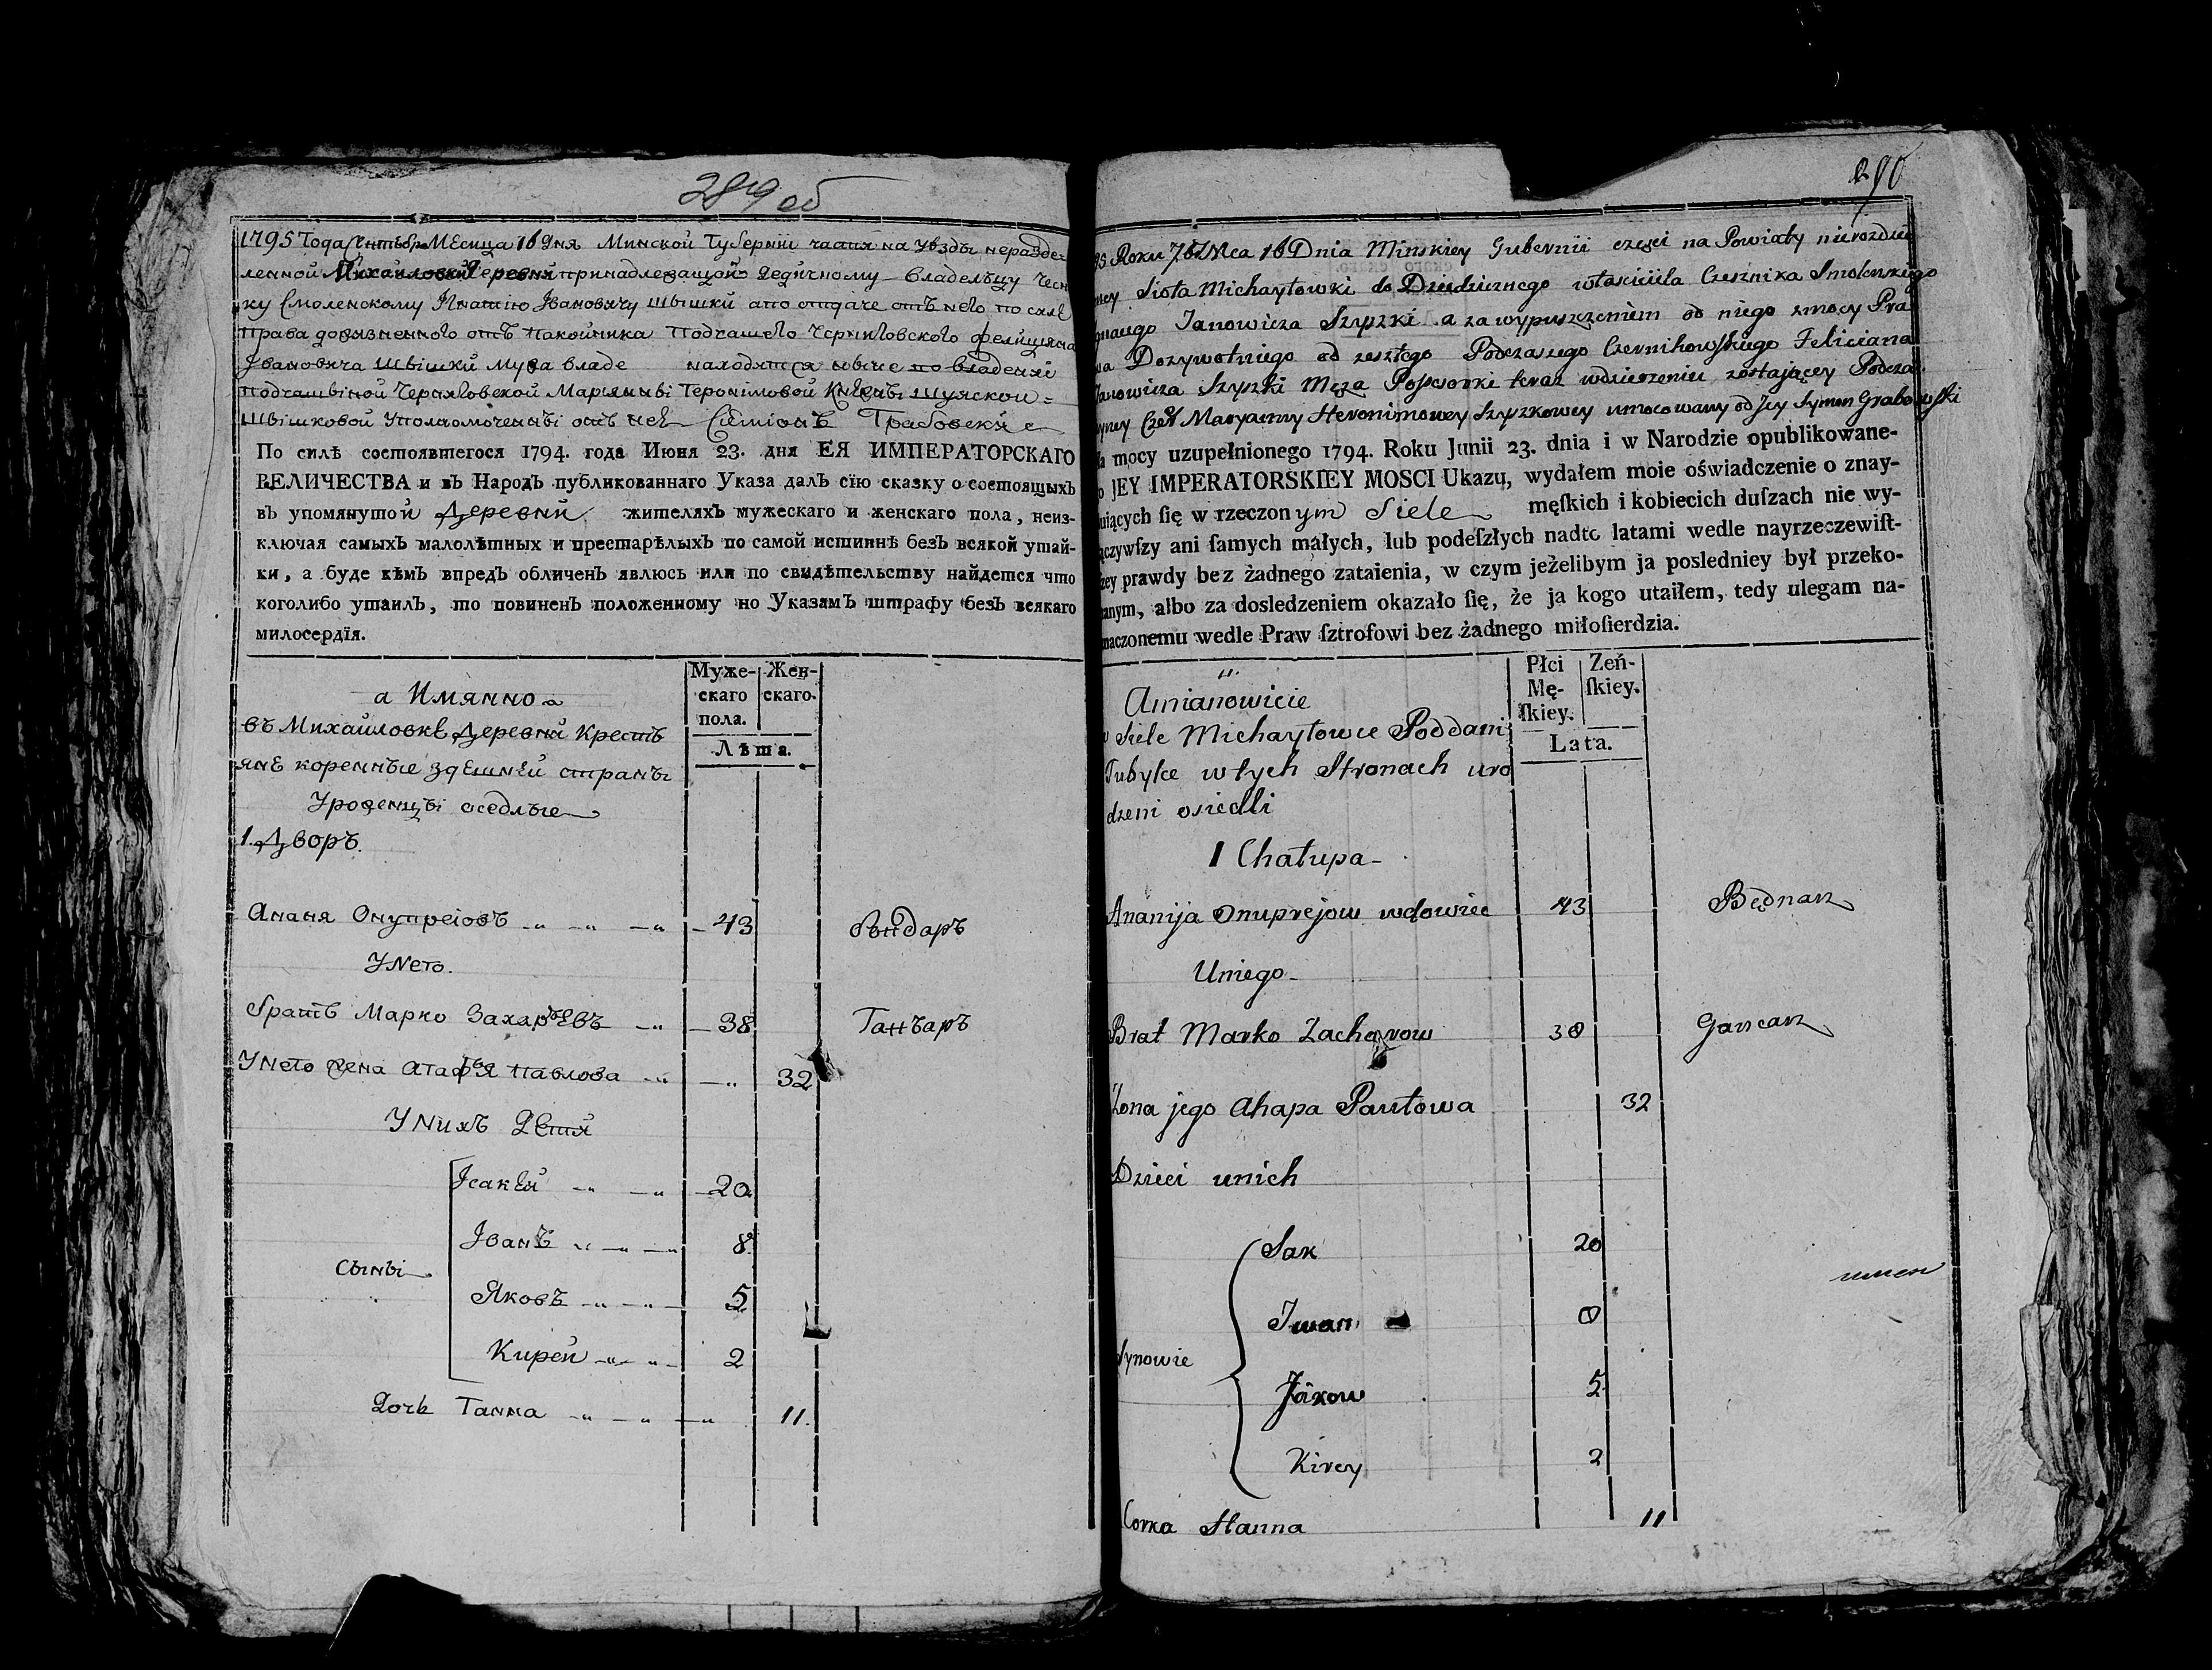 289 об
1795 Года Сентября Месица 16 дня Минской Губерніи части на Уѣзды нераздел
ленной Михайловки Деревни принадлежащой Дедичному Владелъцу Чесн
ку Смоленскому Игнатію Івановичу Швішки апо отдаче отъ него по силе
права дожизненного отъ Покойника Подчашего Черниговского Фелиціяна
Івановича Швішки Мужа владе находятся ныне во владеніи
Подчашвіной Черниговской Маріяннві Геронімовой Шуяской =
Швішковой Уполномоченвіі отъ неѣ Семіонъ Грабовскіе
По силѣ состоявшегося 1794. года Июня 23. дня ЕЯ ИМПЕРАТОРСКАГО
ВЕЛИЧЕСТВА и въ Народъ публикованнаго Указа далъ сїю сказку о состоящыхъ
въ упомянутой Деревни жителяхъ мужескаго и женскаго пола, неиз-
ключая самыхъ малолѣтныхъ и престарѣлыхъ по самой истиннѣ безъ всякой утай-
ки, а буде кѣмъ впредъ обличенъ явлюсь или по свидѣтельству найдется что
коголибо утаилъ, то повиненъ положенному по Указамъ штрафу безъ всякаго
милосердїя.
Муже-
скаго
пола.
Жен-
скаго.
Лѣта.
а Имянно
въ Михайловке Деревни Крестъ
яне коренные здешней странъі
Уроженцві оседлые
1. Дворъ.
Ананя Онупреіовъ 43 бондаръ
У Него.
братъ Марко Захарьевъ 38 Ганъчаръ
У Него жена Агафѣя Павлова 32
У Нихъ Дети
Сынві
Ісакей 20
Іванъ 8
Яковъ 5
Кирей 2
Дочь Ганна 11.
290
95 Roku 7br Mca 16 Dnia Minskiey Gubernii części na Powiaty nierozdzie
ney Sioła Michayłowki do Dziedzicznego właściciela Cześnika Smolenskiego
gnacego Janowicza Szyszki a za wypuszczeniem od niego z mocy Pra
wa Dozywotniego od zeszłego Podczaszego Czernihowskiego Feliciana
Janowicza Szyszki Męża Possesorki teraz w dzierzeniu zostającey Podcza
szyney Czer Maryanny Heronimowey Szyszkowey umocowany od Jey Symon Grabowski
a mocy uzupełnionego 1794. Roku Junii 23. dnia i w Narodzie opublikowane-
o JEY IMPERATORSKIEY MOSCI Ukazu, wydałem moie oświadczenie o znay-
uiących ſię w rzeczonym Siele męſkich i kobiecich duſzach nie wy-
ączywſzy ani ſamych małych, lub podeſzłych nadto latami wedle nayrzeczewiſt-
zey prawdy bez żadnego zataienia, w czym jeżelibym ja posledniey był przeko-
anym, albo za dosledzeniem okazało ſię, że ja kogo utaiłem, tedy ulegam na-
naczonemu wedle Praw ſztrofowi bez żadnego miłoſierdzia.
Płci
Mę-
ſkiey.
Zeń-
ſkiey.
Lata.
Amianowicie
w Siele Michayłowce Poddani
Tubylce w tych Stronach uro
dzeni osiedli
1 Chałupa
Ananija Onuprejow wdowiec 43 Bednarz
U niego
Brat Marko Zacharow 38 Garcarz
Zona jego Ahapa Pawłowa 32
Dzieci u nich
Synowie
Sak 20
Iwan 8
Jakow 5
Kirey 2
Corka Hanna 11